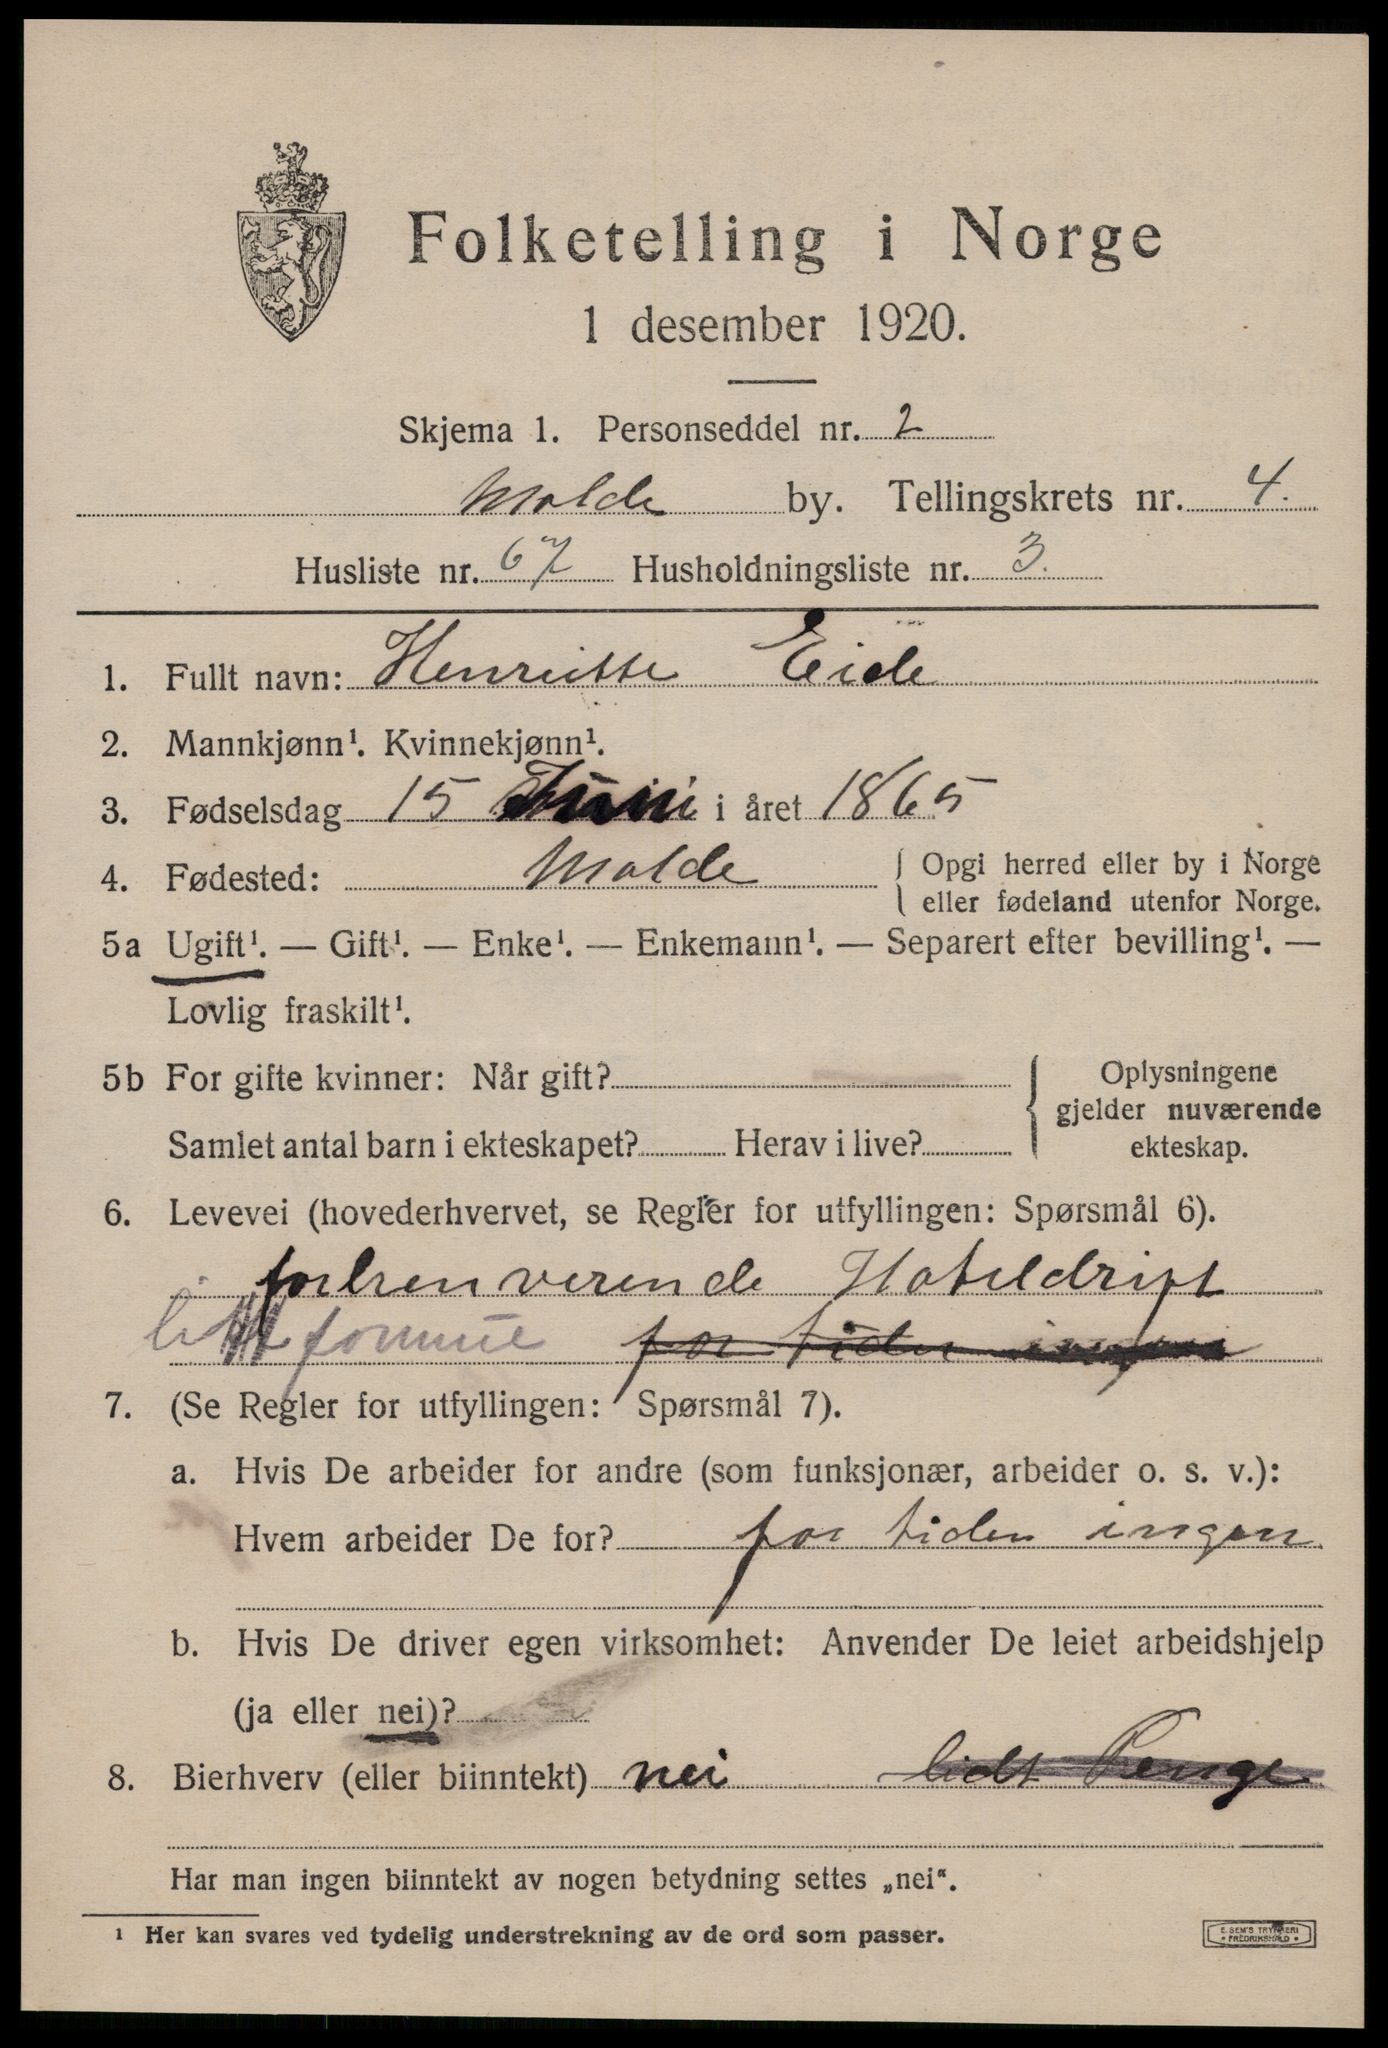 Folketelling i Norge
1 desember 1920.
Skjema 1. Personseddel nr. 2
Molde by. Tellingskrets nr. 4.
Husliste nr. 67 Husholdningsliste nr. 3.
1. Fullt navn: Henriette Eide
2. Mannkjønn¹. Kvinnekjønn¹.
3. Fødselsdag 15 Juni i året 1865
4. Fødested: Molde { Opgi herred eller by i Norge
eller fødeland utenfor Norge.
5a Ugift¹. — Gift¹. — Enke¹. — Enkemann¹. — Separert efter bevilling¹. —
Lovlig fraskilt¹.
5b For gifte kvinner: Når gift? { Oplysningene
gjelder nuværende
Samlet antal barn i ekteskapet? Herav i live? ekteskap.
6. Levevei (hovederhvervet, se Regler for utfyllingen: Spørsmål 6).
forhenverende Hoteldrift
formue for tiden ingen
7. (Se Regler for utfyllingen: Spørsmål 7).
a. Hvis De arbeider for andre (som funksjonær, arbeider o. s. v.):
Hvem arbeider De for? for tiden ingen
b. Hvis De driver egen virksomhet: Anvender De leiet arbeidshjelp
(ja eller nei)?
8. Bierhverv (eller biinntekt) nei lidt Penge
Har man ingen biinntekt av nogen betydning settes „nei“.
¹ Her kan svares ved tydelig understrekning av de ord som passer.
E. SEM'S TRYKKERI
• FREDRIKSHALD •